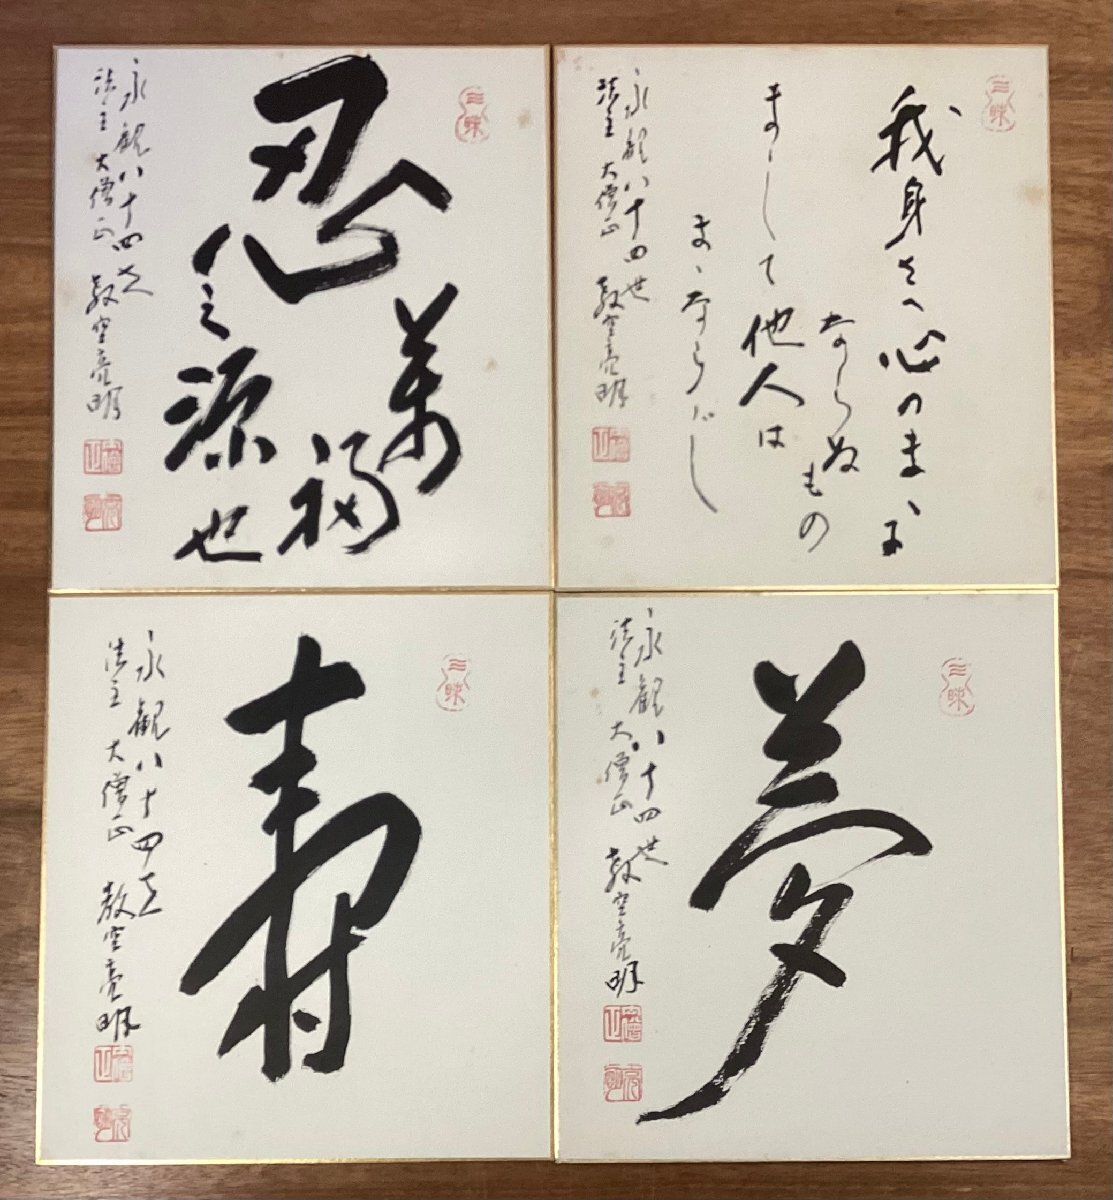 三昧
忍
萬福
之源也
永観八十四世
法主 大僧正 教空亮明
三昧
我身さへ心のまゝに
ならぬもの
まして他人は
まゝならじ
永観八十四世
法主 大僧正 教空亮明
三昧
壽
永観八十四世
法主 大僧正 教空亮明
三昧
夢
永観八十四世
法主 大僧正 教空亮明